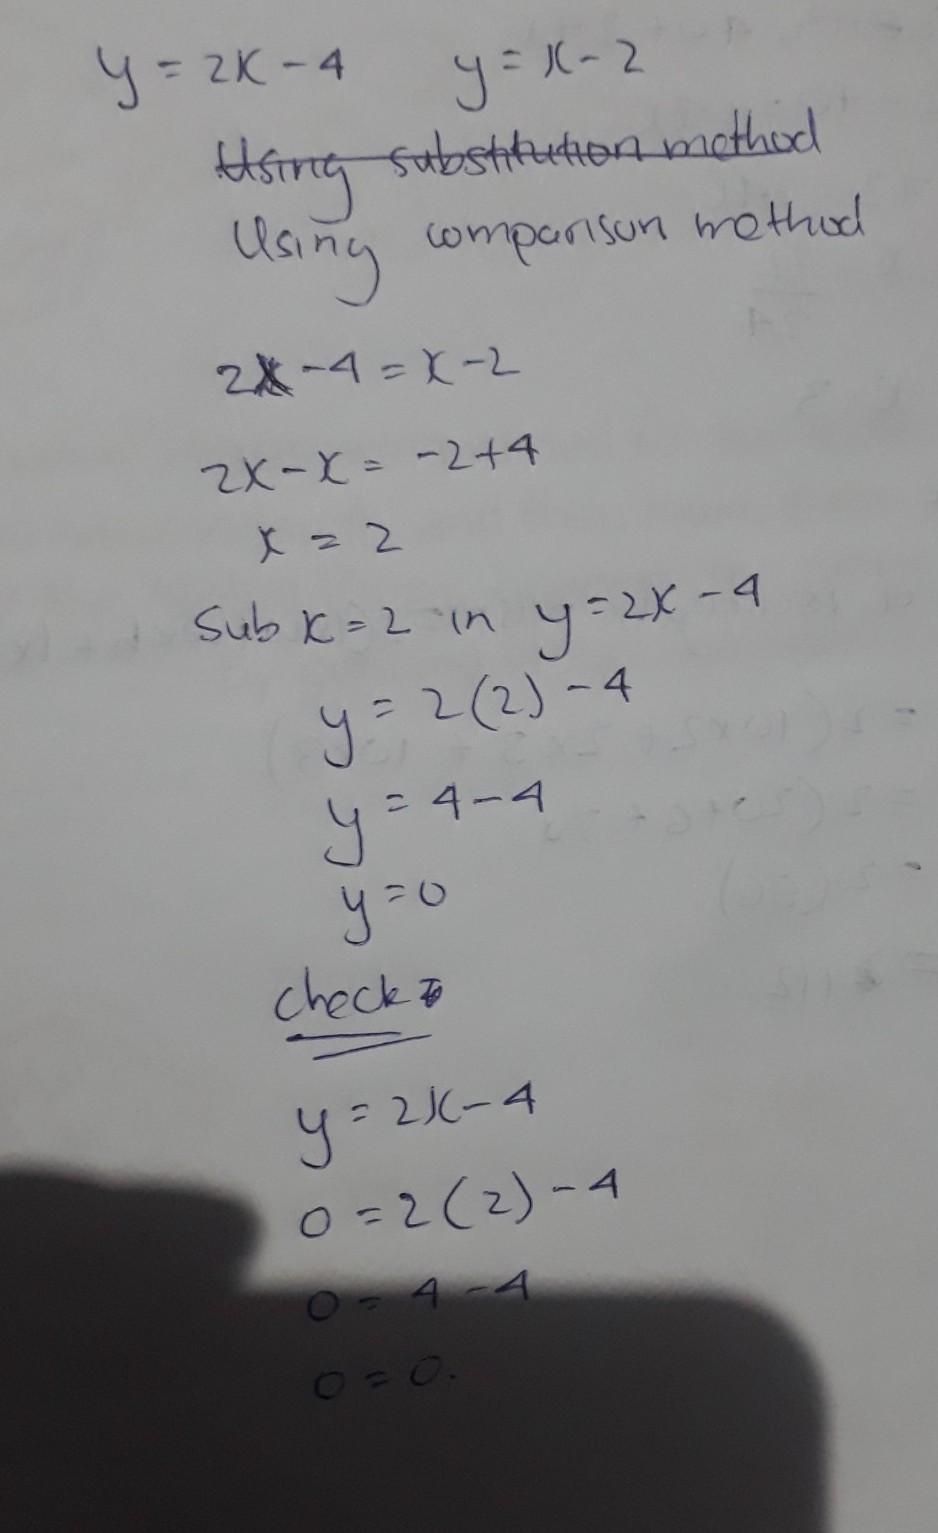 y = 2x - 4 y = x - 2
Using substitution method
Using comparison method
2x - 4 = x - 2
2x - x = -2 + 4
x = 2
Sub x = 2 in y = 2x - 4
y = 2(2) - 4
y = 4 - 4
y = 0
check
y = 2x - 4
0 = 2(2) - 4
0 = 4 - 4
0 = 0.